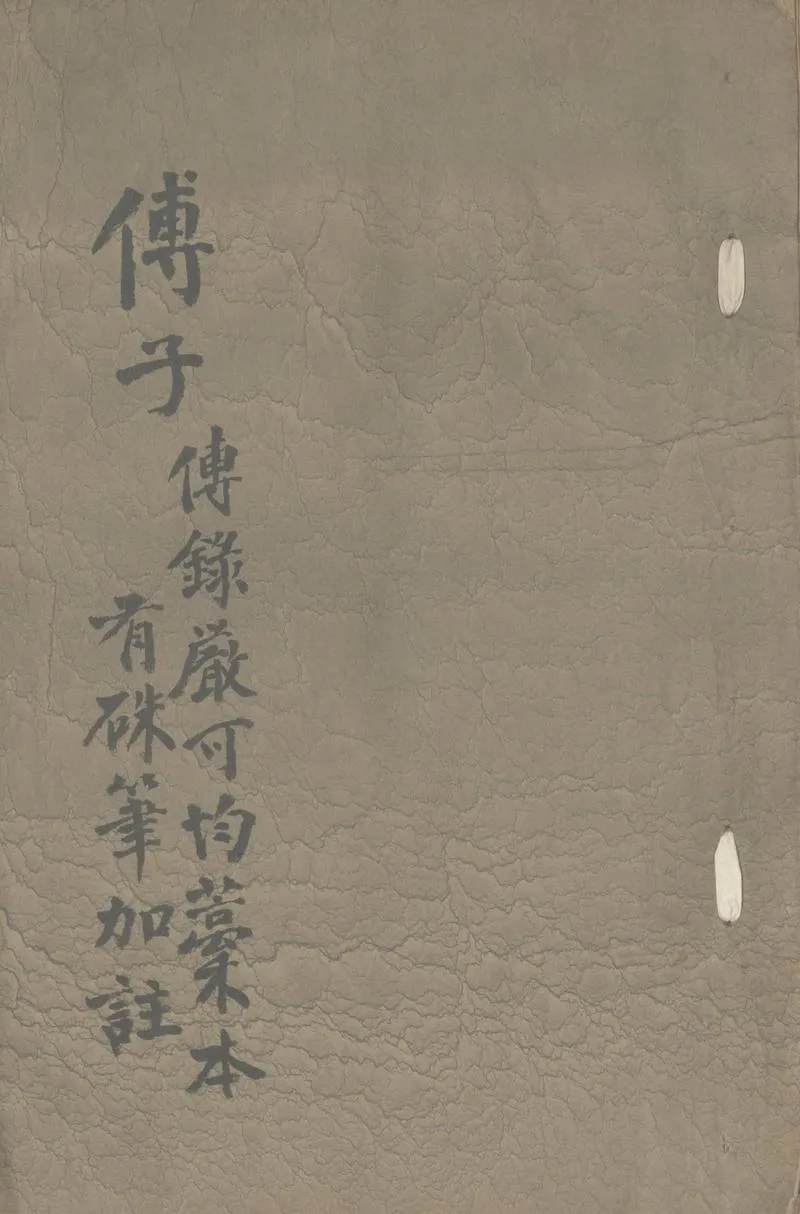 傅子
傳錄嚴可均藁本
有硃筆加註